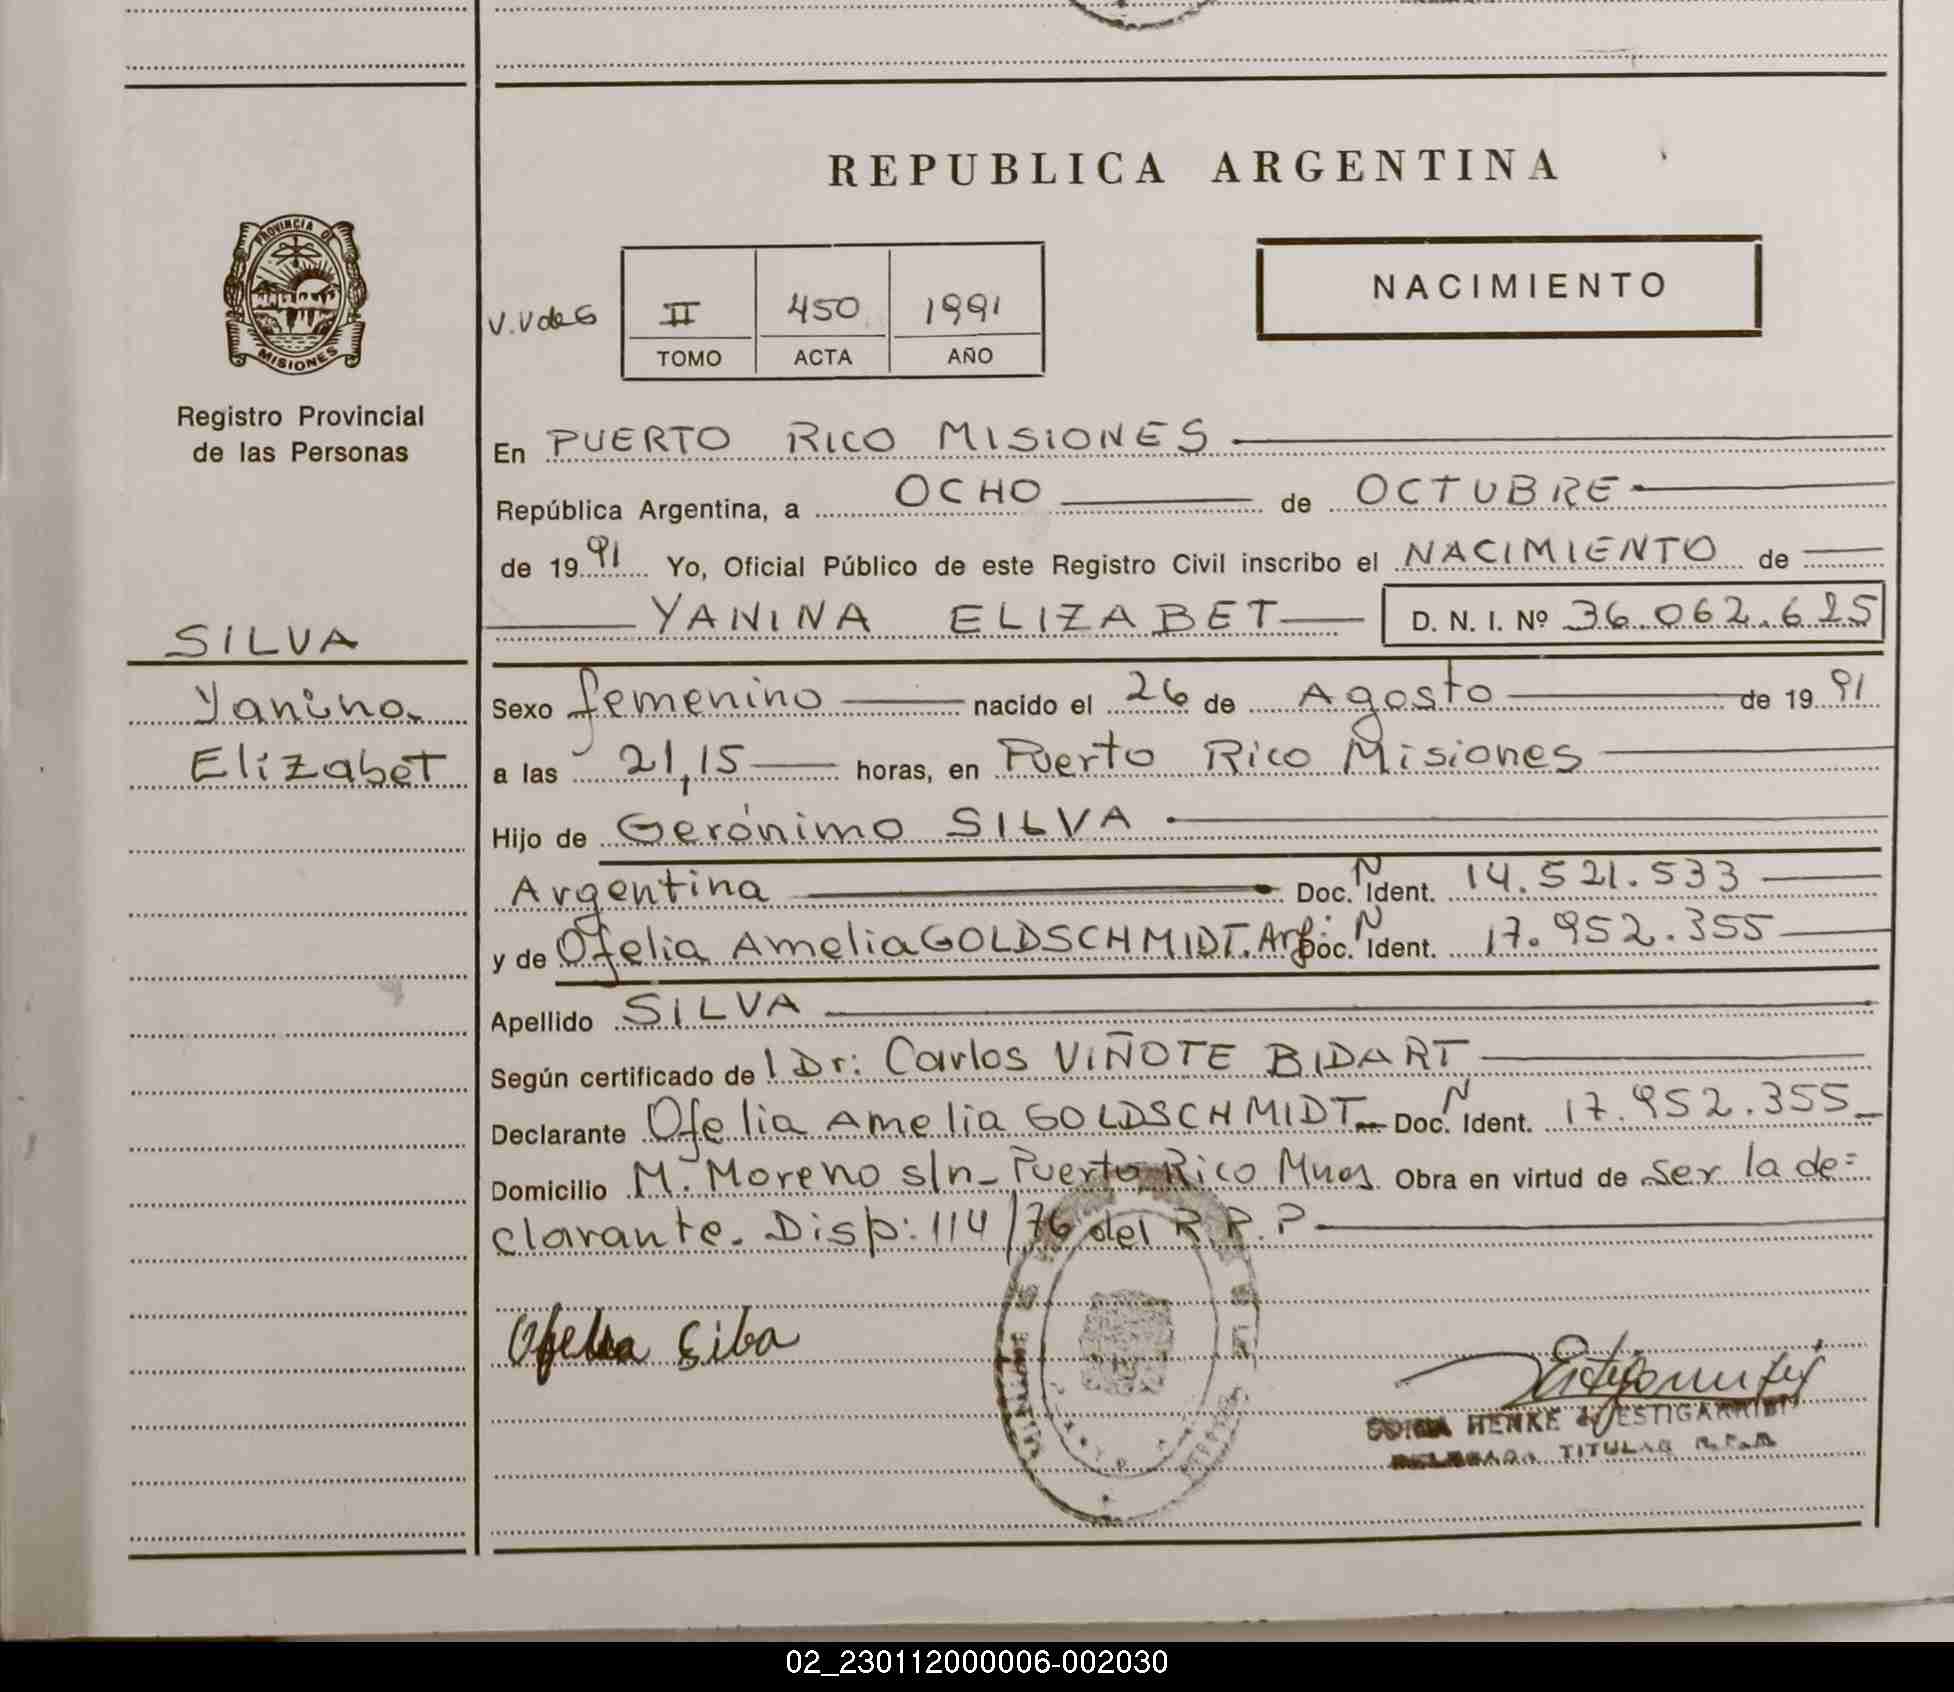 REPUBLICA ARGENTINA
PROVINCIA DE
MISIONES
Registro Provincial
de las Personas
V.V de G
II 450 1991
TOMO ACTA AÑO
NACIMIENTO
En PUERTO RICO MISIONES
República Argentina, a OCHO de OCTUBRE
de 19 91 Yo, Oficial Público de este Registro Civil inscribo el NACIMIENTO de
YANINA ELIZABET D. N. I. Nº 36.062.625
SILVA
Yanina
Elizabet
Sexo femenino nacido el 26 de Agosto de 19 91
a las 21,15 horas, en Puerto Rico Misiones
Hijo de Gerónimo SILVA
Argentina Doc. N Ident. 14.521.533
y de Ofelia Amelia GOLDSCHMIDT. Arg. Doc. N Ident. 17.952.355
Apellido SILVA
Según certificado de l Dr: Carlos VIÑOTE BIDART
Declarante Ofelia Amelia GOLDSCHMIDT Doc. N Ident. 17.952.355
Domicilio M. Moreno s/n - Puerto Rico Mnes Obra en virtud de ser la de=
clarante. Disp: 114/76 del R.P.P
Ofelia Silva
HENKE de ESTIGARRIBIA
DELEGADA TITULAR R.P.P
02_230112000006-002030